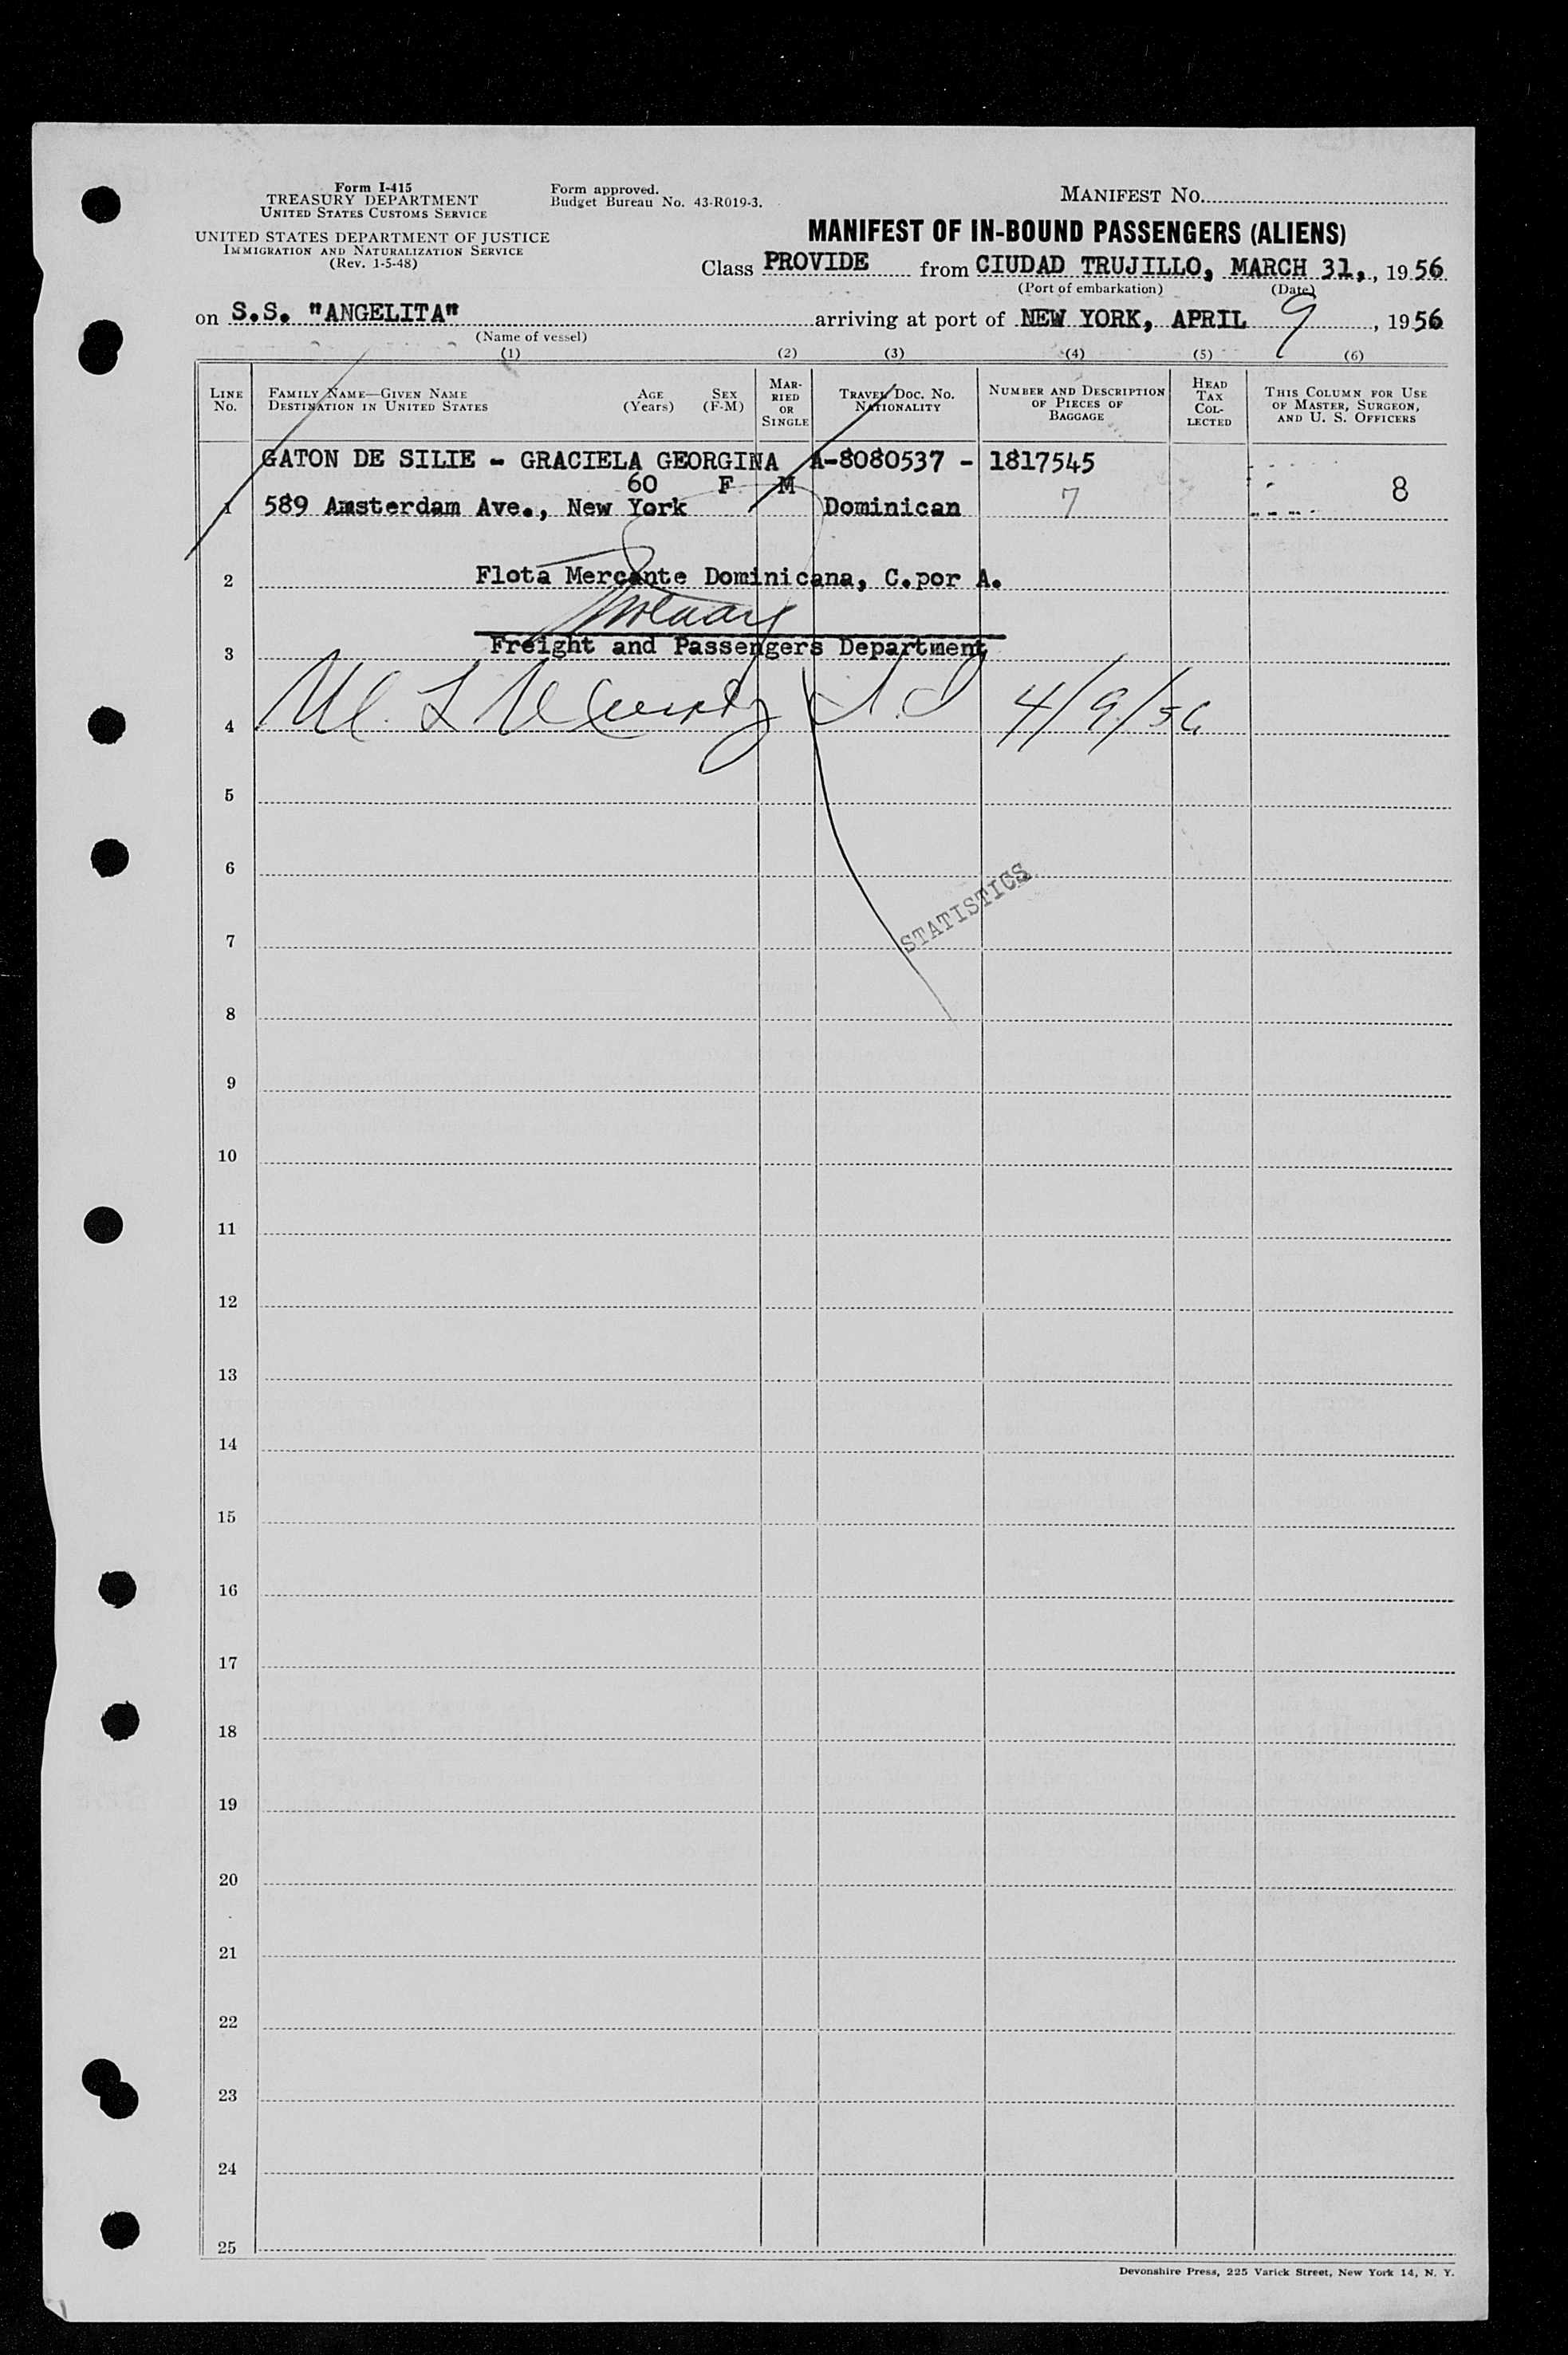 Form I-415
TREASURY DEPARTMENT
UNITED STATES CUSTOMS SERVICE
UNITED STATES DEPARTMENT OF JUSTICE
IMMIGRATION AND NATURALIZATION SERVICE
(Rev. 1-5-48)
Form approved.
Budget Bureau No. 43-R019-3.
MANIFEST NO.
MANIFEST OF IN-BOUND PASSENGERS (ALIENS)
Class PROVIDE from CIUDAD TRUJILLO, MARCH 31, , 1956
(Port of embarkation) (Date)
on S.S. "ANGELITA" arriving at port of NEW YORK, APRIL 9, 1956
(Name of vessel)
(1) (2) (3) (4) (5) (6)
LINE No.
FAMILY NAME—GIVEN NAME
DESTINATION IN UNITED STATES
AGE (Years)
SEX (F-M)
MARRIED OR SINGLE
TRAVEL DOC. NO.
NATIONALITY
NUMBER AND DESCRIPTION OF PIECES OF BAGGAGE
HEAD TAX COLLECTED
THIS COLUMN FOR USE OF MASTER, SURGEON, AND U. S. OFFICERS
GATON DE SILIE - GRACIELA GEORGINA A-8080537 - 1817545
60 F M 8
1 589 Amsterdam Ave., New York Dominican 7
2 Flota Mercante Dominicana, C.por A.
3 Freight and Passengers Department
4 4/9/56
5
6
STATISTICS
7
8
9
10
11
12
13
14
15
16
17
18
19
20
21
22
23
24
25
Devonshire Press, 225 Varick Street, New York 14, N. Y.